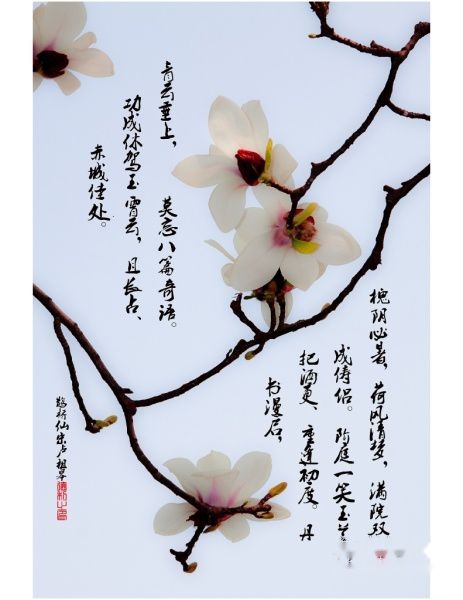 槐阴收暑，荷风清梦，满院双
成俦侣。阶庭一笑玉兰
把酒更、重逢初度。丹
书漫启，
青云垂上，莫忘八篇奇语。
功成休驾玉霄云，且长占、
赤城佳处。
鹊桥仙宋卢祖皋